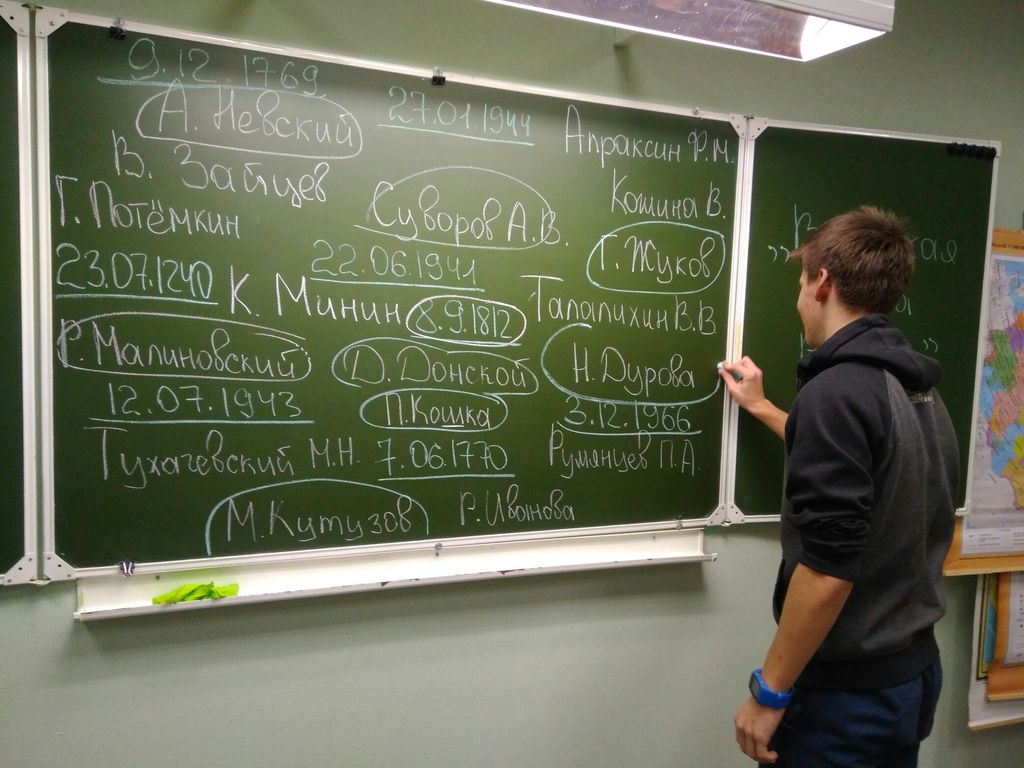 9.12.1769
А. Невский
27.01.1944
Апраксин Ф.М.
В. Зайцев
Кошина В.
Г. Потёмкин
Суворов А.В.
Г. Жуков
23.07.1240
22.06.1941
К. Минин
8.9.1812
Талалихин В.В.
Р. Малиновский
Д. Донской
Н. Дурова
12.07.1943
П. Кошка
3.12.1966
Тухачевский М.Н.
7.06.1770
Румянцев П.А.
М. Кутузов
Р. Иванова